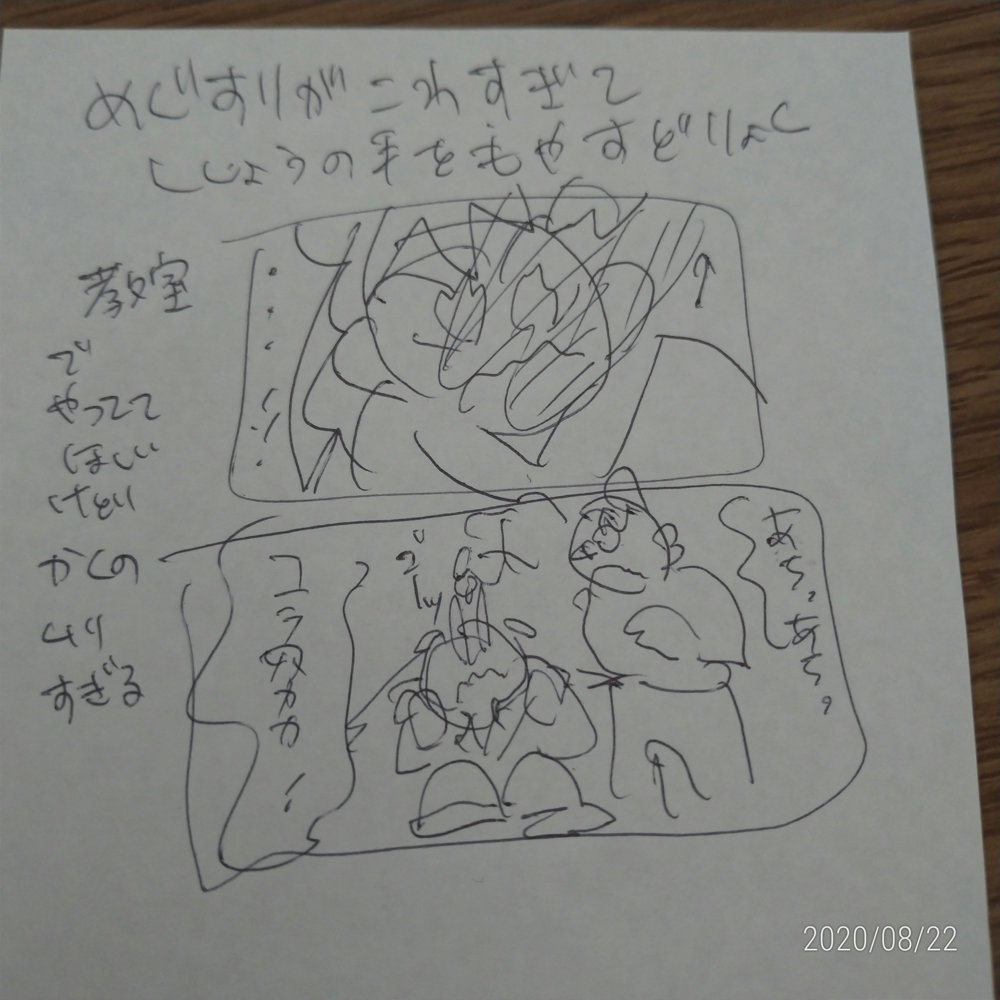 めぐすりがこわすぎて
ししょうの手をもやすどりょく
教室
で
やってて
ほしい
けど
かくの
ムリ
すぎる
あち。あち。
コラ
2020/08/22